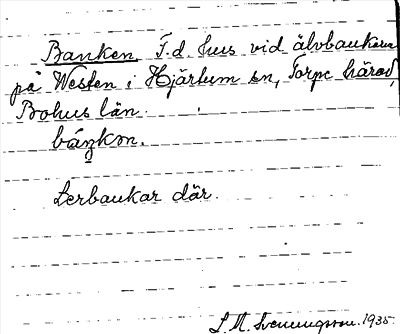 Banken. F.d. hus vid älvbankarna
på Westen i Hjärtum sn, Torpe härad,
Bohus län.
báŋkɷn.
Lerbankar där.
S. M. Svenungsson. 1935.